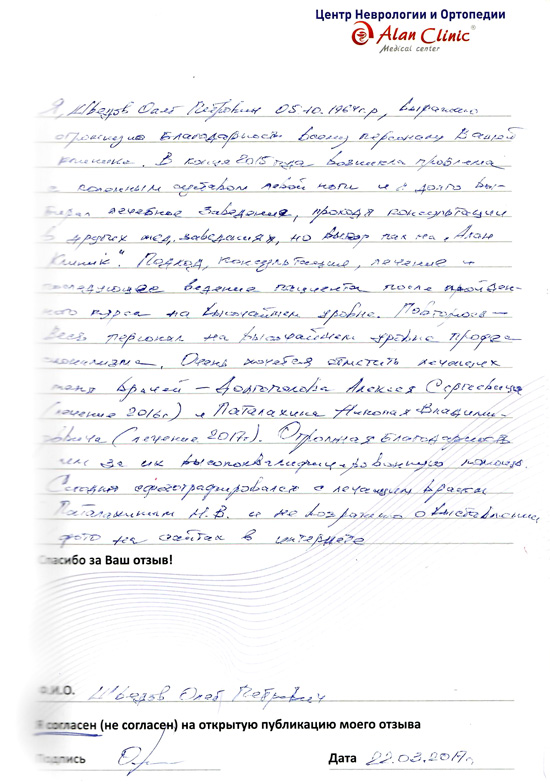 Центр Неврологии и Ортопедии
Alan Clinic®
Medical center
Я, Швецов Олег Петрович 05.10.1964г.р, выражаю
огромную благодарность всему персоналу Вашей
клиники. В конце 2015 года возникла проблема
с коленным суставом левой ноги и я долго вы-
бирал лечебное заведение, проходя консультации
в других мед. заведениях, но выбор пал на „Алан
Клиник". Подход, консультации, лечение и
последующее ведение пациента после пройден-
ного курса на высочайшем уровне.
Весь персонал на высочайшем уровне профес
сионализма. Очень хочется отметить лечащих
меня врачей – Долгополова Алексея Сергеевича
(лечение 2016г) и Паталахина Николая Владими-
ровича (лечение 2017г). Огромная благодарность
им за их высококвалифицированную помощь.
Сегодня сфотографировался с лечащим врачом
Паталахиным Н.В. и не возражаю о выставлении
фото на сайтах в интернете
Спасибо за Ваш отзыв!
Ф.И.О. Швецов Олег Петрович
Я согласен (не согласен) на открытую публикацию моего отзыва
Подпись Дата 22.03.2017г.